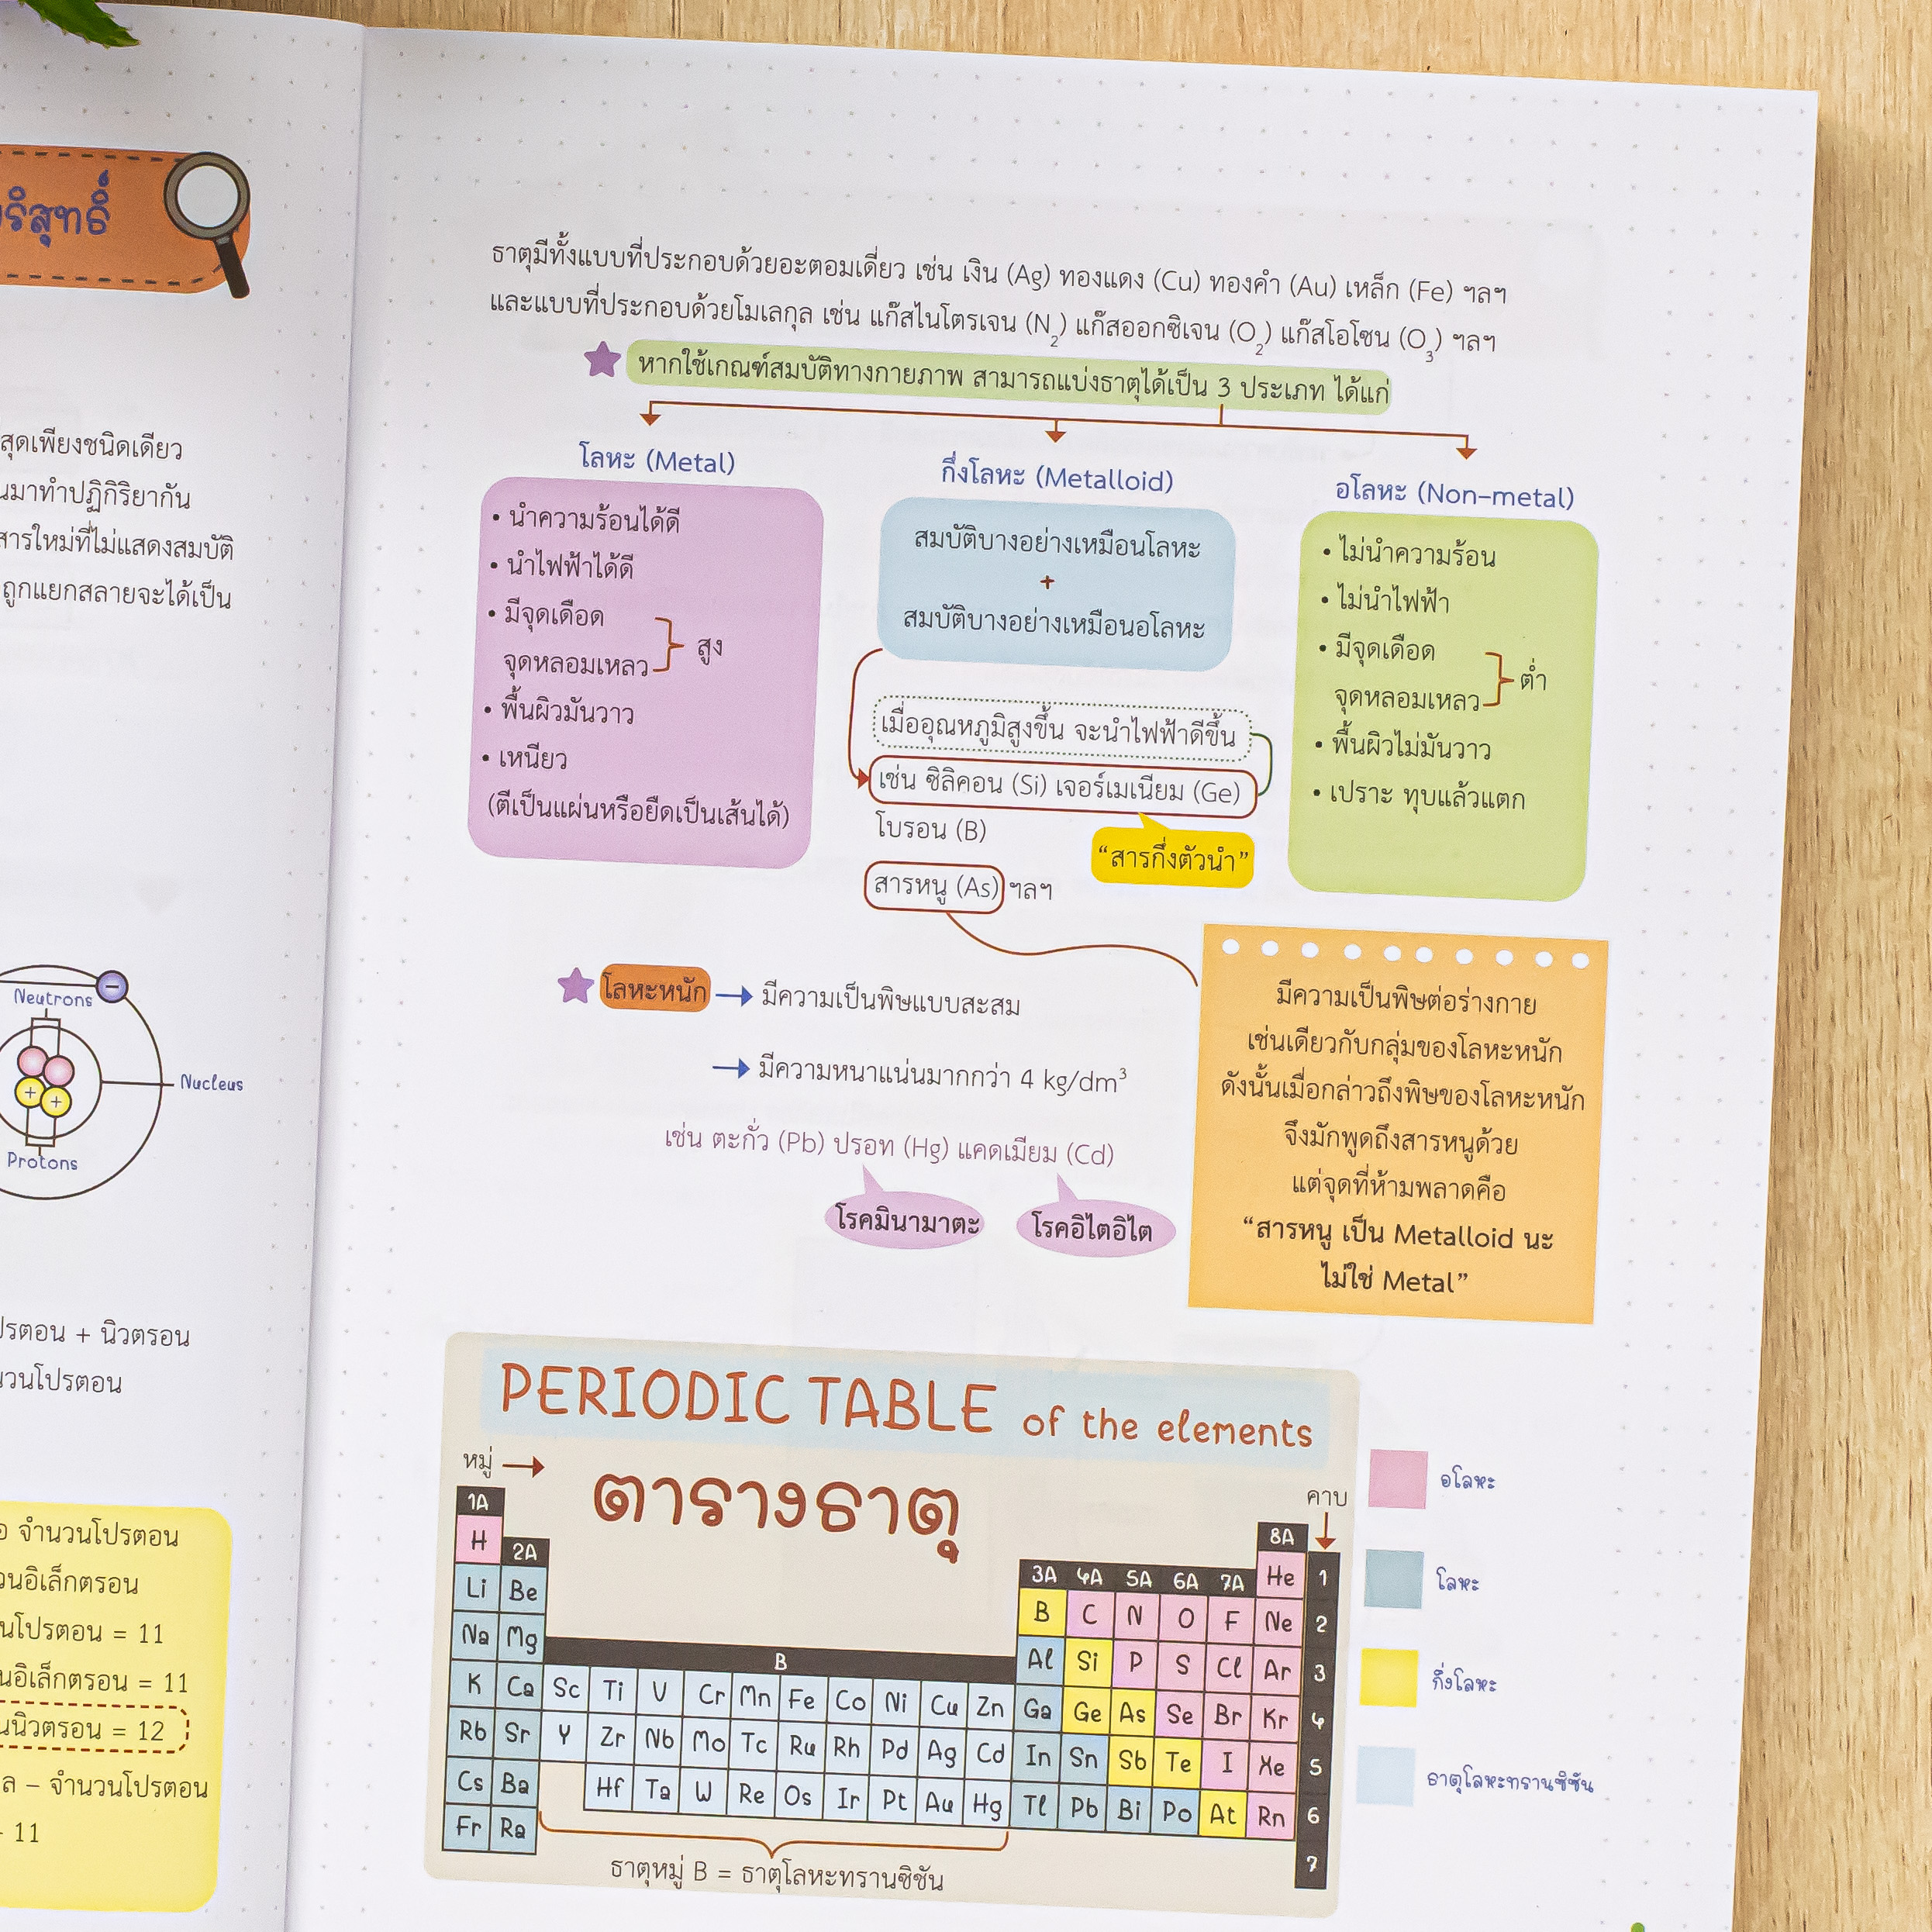 ริสุทธิ์
สุดเพียงชนิดเดียว
นมาทำปฏิกิริยากัน
สารใหม่ที่ไม่แสดงสมบัติ
ถูกแยกสลายจะได้เป็น
Neutrons
−
+
+
Nucleus
Protons
ปรตอน + นิวตรอน
นวนโปรตอน
อ จำนวนโปรตอน
วนอิเล็กตรอน
นโปรตอน = 11
นอิเล็กตรอน = 11
นนิวตรอน = 12
ล – จำนวนโปรตอน
- 11
ธาตุมีทั้งแบบที่ประกอบด้วยอะตอมเดี่ยว เช่น เงิน (Ag) ทองแดง (Cu) ทองคำ (Au) เหล็ก (Fe) ฯลฯ
และแบบที่ประกอบด้วยโมเลกุล เช่น แก๊สไนโตรเจน (N₂) แก๊สออกซิเจน (O₂) แก๊สโอโซน (O₃) ฯลฯ
หากใช้เกณฑ์สมบัติทางกายภาพ สามารถแบ่งธาตุได้เป็น 3 ประเภท ได้แก่
โลหะ (Metal)
• นำความร้อนได้ดี
• นำไฟฟ้าได้ดี
• มีจุดเดือด
จุดหลอมเหลว
สูง
• พื้นผิวมันวาว
• เหนียว
(ตีเป็นแผ่นหรือยืดเป็นเส้นได้)
กึ่งโลหะ (Metalloid)
สมบัติบางอย่างเหมือนโลหะ
+
สมบัติบางอย่างเหมือนอโลหะ
เมื่ออุณหภูมิสูงขึ้น จะนำไฟฟ้าดีขึ้น
เช่น ซิลิคอน (Si) เจอร์เมเนียม (Ge)
โบรอน (B)
“สารกึ่งตัวนำ”
สารหนู (As) ฯลฯ
อโลหะ (Non-metal)
• ไม่นำความร้อน
• ไม่นำไฟฟ้า
• มีจุดเดือด
จุดหลอมเหลว
ต่ำ
• พื้นผิวไม่มันวาว
• เปราะ ทุบแล้วแตก
โลหะหนัก → มีความเป็นพิษแบบสะสม
→ มีความหนาแน่นมากกว่า 4 kg/dm³
เช่น ตะกั่ว (Pb) ปรอท (Hg) แคดเมียม (Cd)
โรคมินามาตะ
โรคอิไตอิไต
มีความเป็นพิษต่อร่างกาย
เช่นเดียวกับกลุ่มของโลหะหนัก
ดังนั้นเมื่อกล่าวถึงพิษของโลหะหนัก
จึงมักพูดถึงสารหนูด้วย
แต่จุดที่ห้ามพลาดคือ
“สารหนู เป็น Metalloid นะ
ไม่ใช่ Metal”
PERIODIC TABLE of the elements
หมู่ →
ตารางธาตุ
คาบ
1A 8A
H 2A 3A 4A 5A 6A 7A He 1
Li Be B C N O F Ne 2
Na Mg B Al Si P S Cl Ar 3
K Ca Sc Ti V Cr Mn Fe Co Ni Cu Zn Ga Ge As Se Br Kr 4
Rb Sr Y Zr Nb Mo Tc Ru Rh Pd Ag Cd In Sn Sb Te I Xe 5
Cs Ba Hf Ta W Re Os Ir Pt Au Hg Tl Pb Bi Po At Rn 6
Fr Ra 7
ธาตุหมู่ B = ธาตุโลหะทรานซิชัน
อโลหะ
โลหะ
กึ่งโลหะ
ธาตุโลหะทรานซิชัน